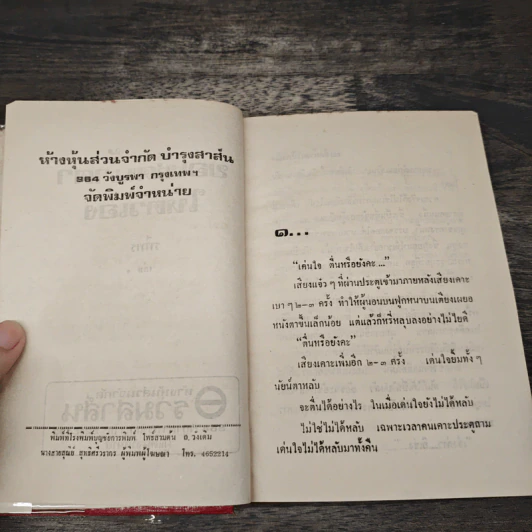 ห้างหุ้นส่วนจำกัด บำรุงสาส์น
984 วังบูรพา กรุงเทพฯ
จัดพิมพ์จำหน่าย
รวมสาส์น
พิมพ์ที่โรงพิมพ์บุญชการพิมพ์ โพธิ์สามต้น ถ.วังเดิม
นางสายสุณีย์ ผู้พิมพ์ผู้โฆษณา โทร. 4652214
๑...
“เด่นใจ ตื่นหรือยังคะ...”
เสียงแจ๋ว ๆ ที่ผ่านประตูเข้ามาภายหลังเสียงเคาะ
เบา ๆ ๒-๓ ครั้ง ทำให้ผู้นอนบนฟูกหนาบนเตียงเผยอ
หนังตาขึ้นเล็กน้อย แต่แล้วก็หรี่หลุบลงอย่างไม่ไยดี
“ตื่นหรือยังคะ”
เสียงเคาะเพิ่มอีก ๒-๓ ครั้ง เด่นใจยิ้มทั้ง ๆ
นัยน์ตาหลับ
จะตื่นได้อย่างไร ในเมื่อเด่นใจยังไม่ได้หลับ
ไม่ใช่ไม่ได้หลับ เฉพาะเวลาคนเคาะประตูถาม
เด่นใจไม่ได้หลับมาทั้งคืน